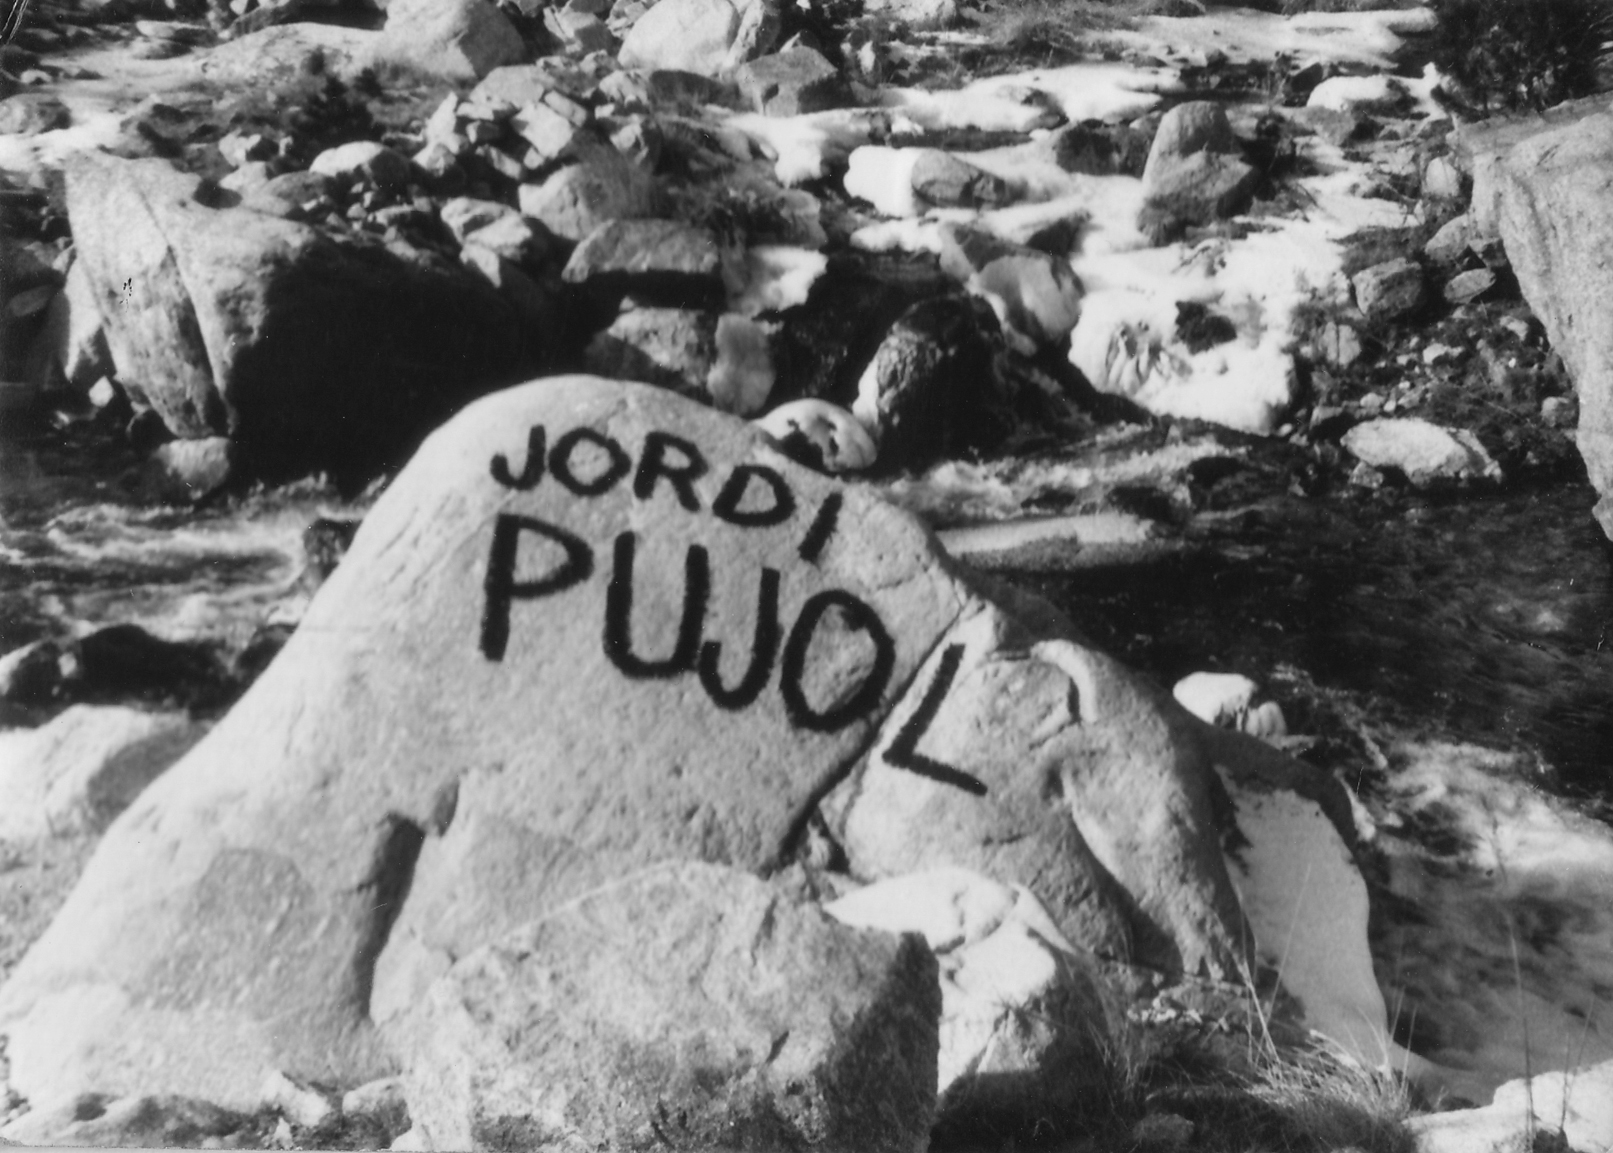 JORDI
PUJOL